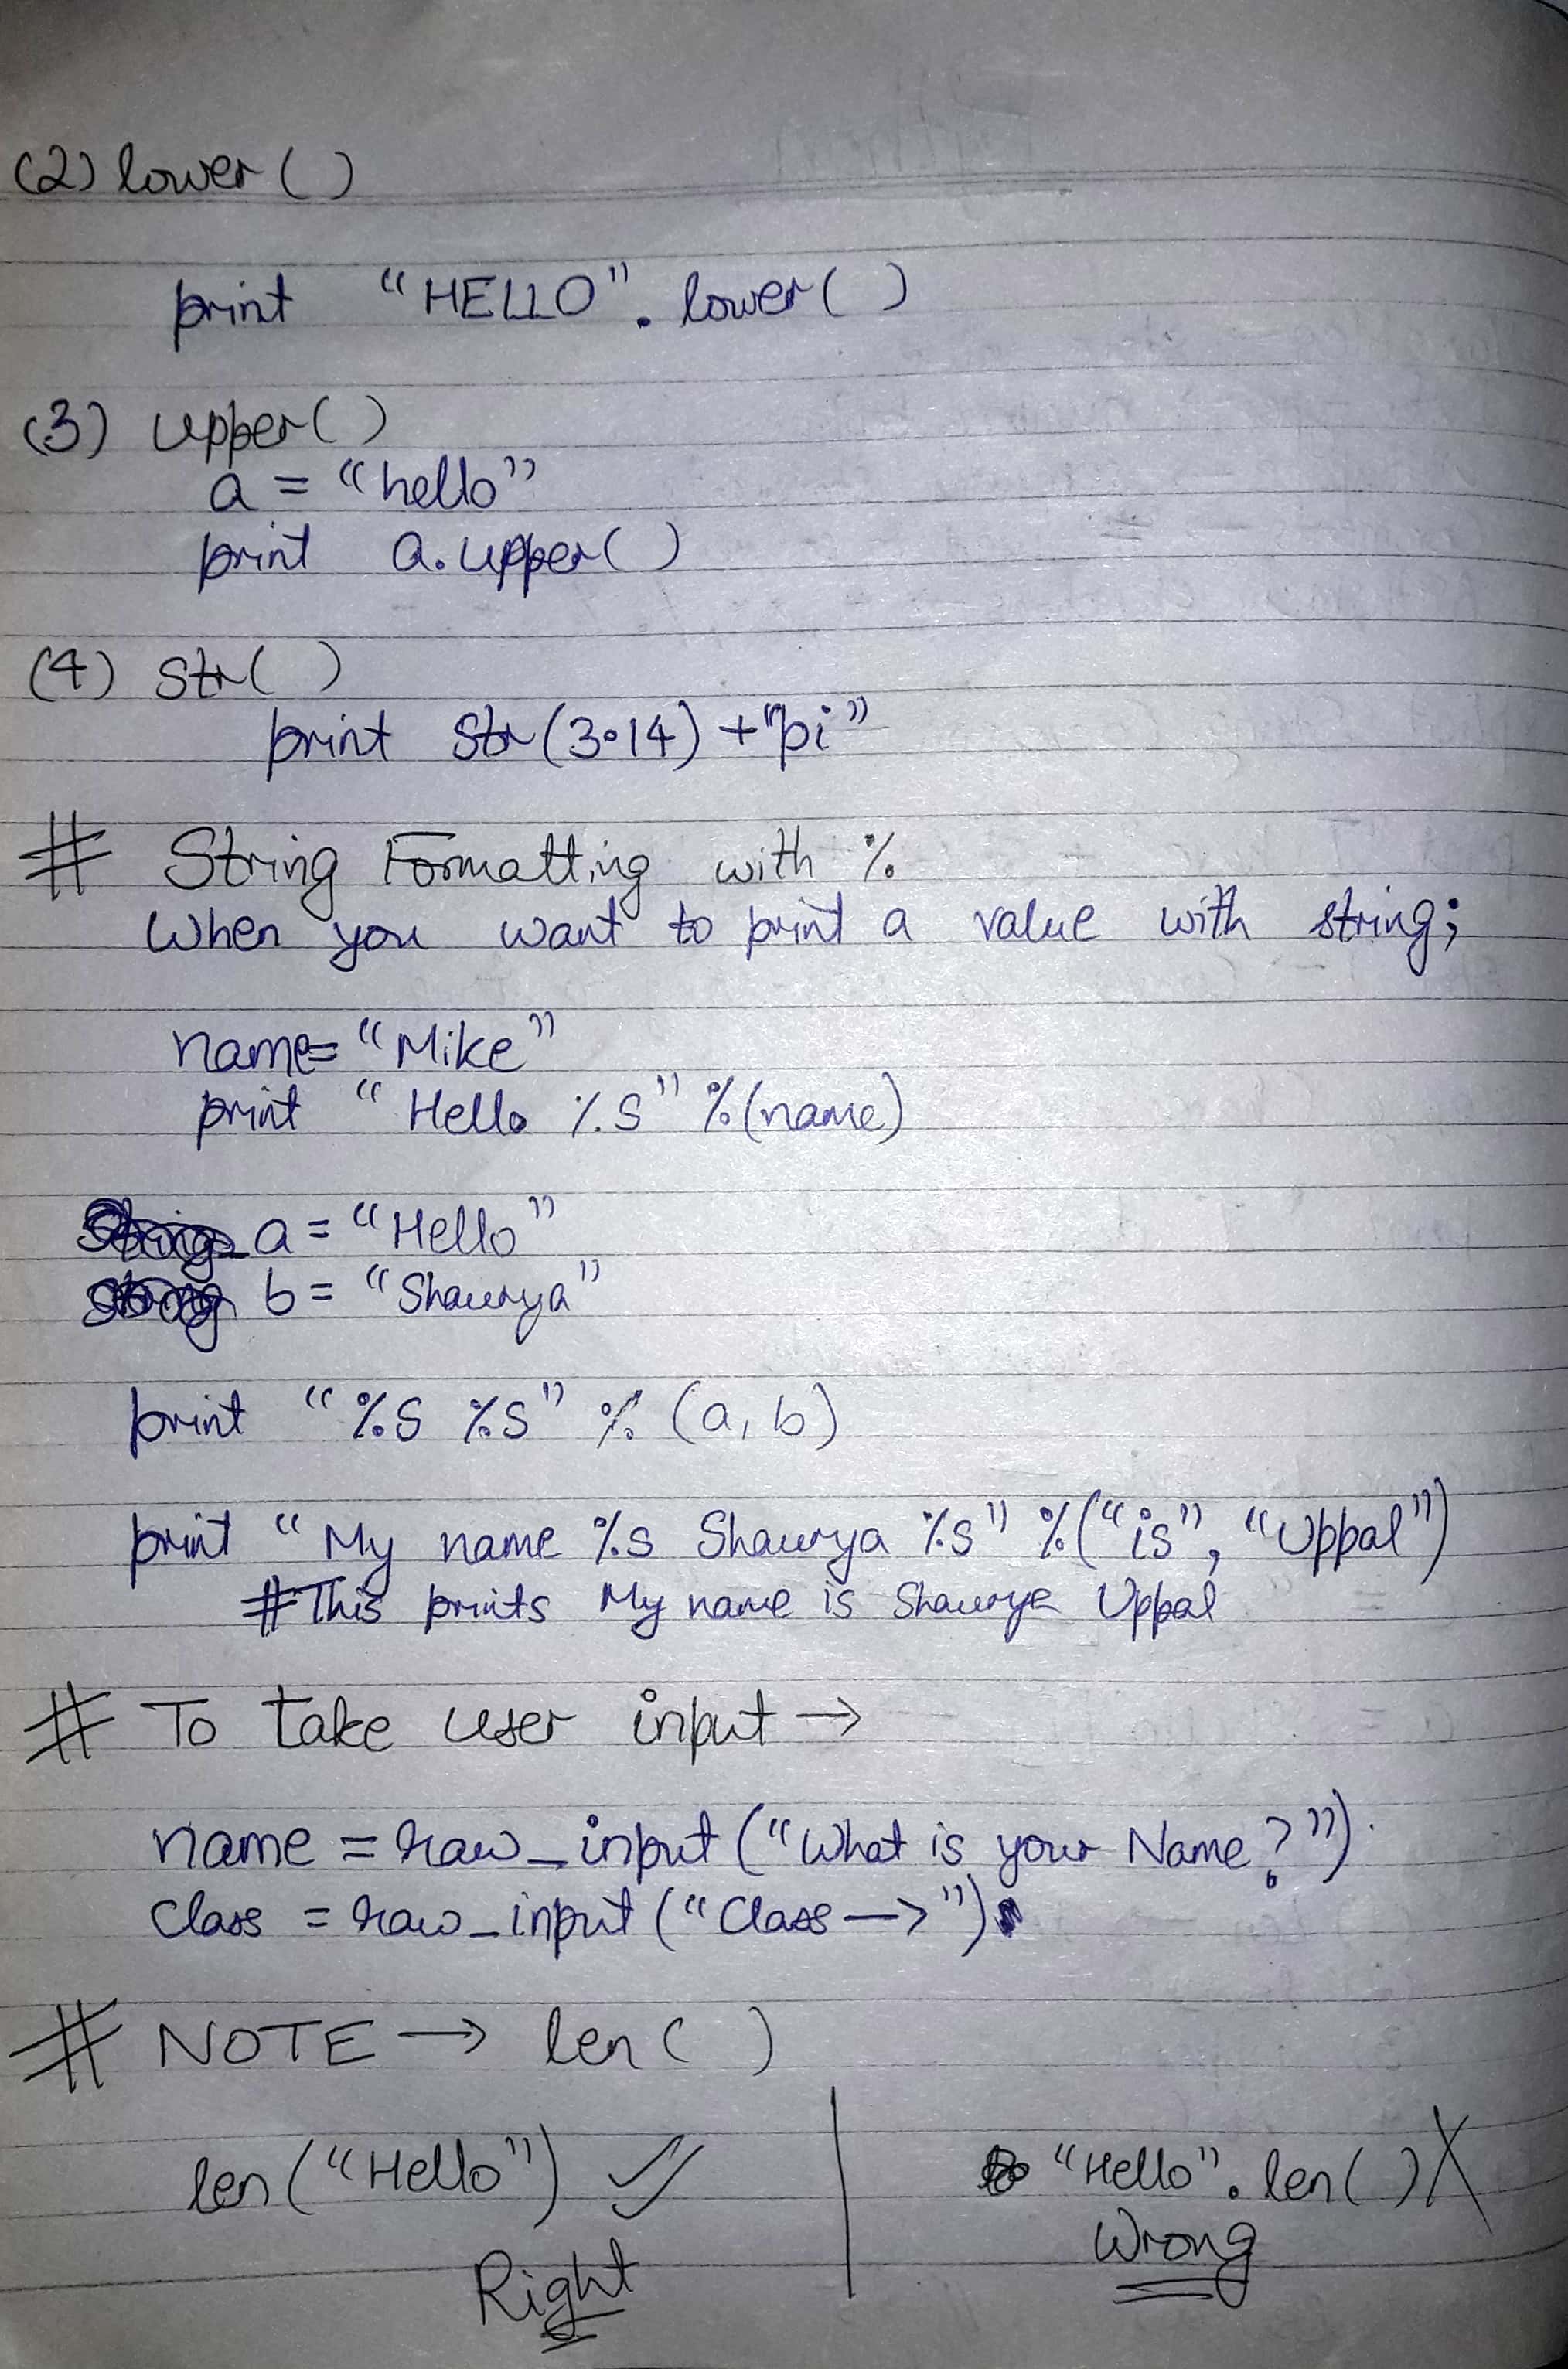 (2) lower ( )
print "HELLO". lower ( )
(3) upper ( )
a = "hello"
print a. upper ( )
(4) str ( )
print str (3.14) + "pi"
# String Formatting with %
When you want to print a value with string;
name= "Mike"
print "Hello %s" % (name)
a = "Hello"
b = "Shaurya"
print "%s %s" % (a, b)
print "My name %s Shaurya %s" % ("is", "Uppal")
# This prints My name is Shaurya Uppal
# To take user input →
name = raw_input ("What is your Name?")
class = raw_input ("Class —>")
# NOTE → len ( )
len ("Hello") ✓ | "Hello". len ( ) X
Right Wrong